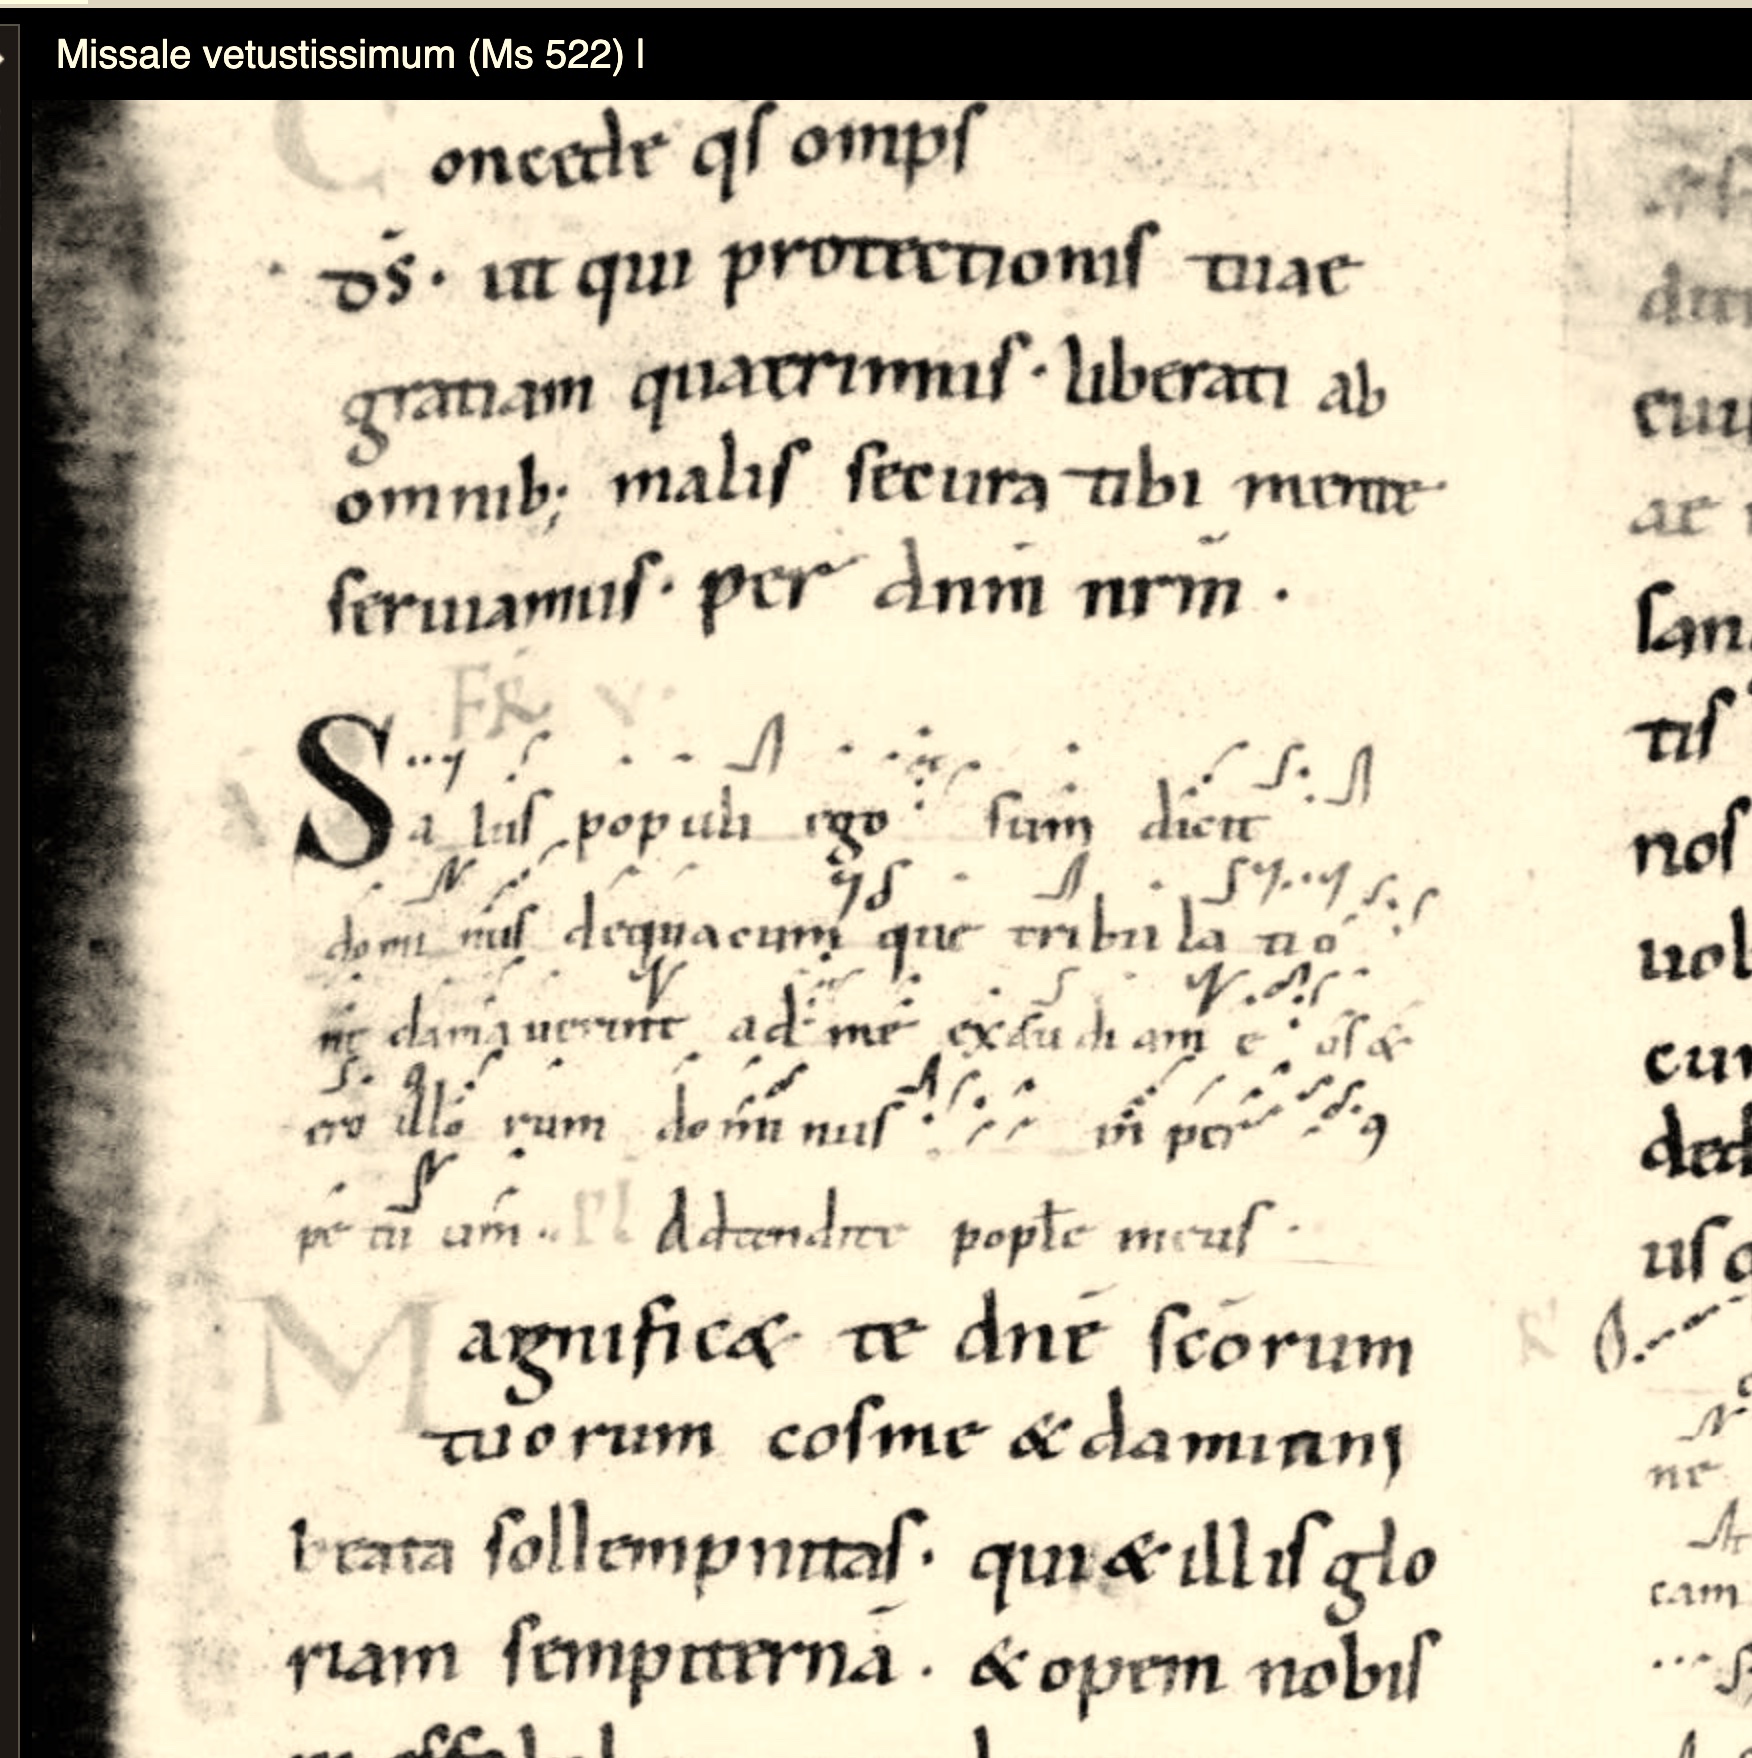 Missale vetustissimum (Ms 522) |
Concede qs omps
ds̄· ut qui protectionis tuae
gratiam quaerimus· liberati ab
omnib; malis secura tibi mente
seruiamus· per dnm̄ nrm̄ ·
FR V·
Sa lus populi ego sum dicit
domi nus dequacum que tribu la tio
ne clamauerint ad me exau di am e os &
ero illo rum domi nus in per
pe tu um· Ps Adtendite popłe meus·
Magnificæ te dnē scōrum
tuorum cosme & damiani
beata sollempnitas· qui & illis glo
riam sempiternā· & opem nobis